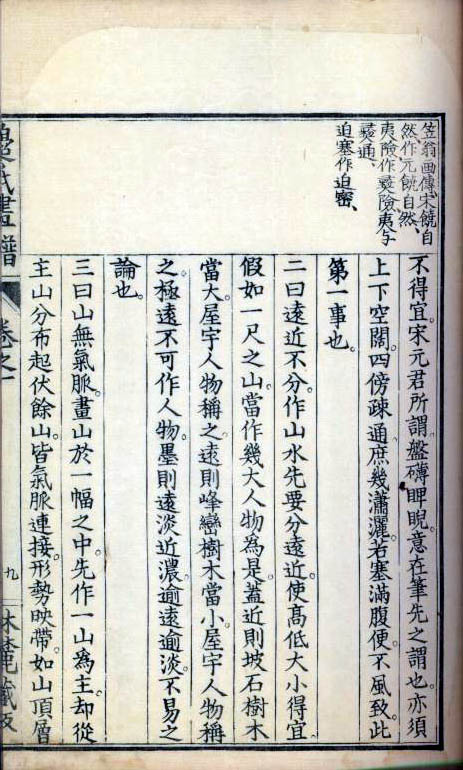 笠翁画傳宋饒自
然作元饒自然、
夷險作彞險夷与
彞通、
迫塞作迫密、
不得宜。宋元君所謂盤礴睥睨意在筆先之謂也。亦須
上下空闊。四傍疎通。庶幾瀟灑。若塞滿腹。便不風致。此
第一事也。
二曰遠近不分。作山水先要分遠近。使高低大小得宜。
假如一尺之山。當作幾大人物為是。蓋近則坡石樹木
當大。屋宇人物稱之。遠則峰巒樹木當小。屋宇人物稱
之。極遠不可作人物。墨則遠淡近濃。逾遠逾淡。不易之
論也。
三曰山無氣脈。畫山於一幅之中。先作一山為主。却從
主山分布起伏。餘山皆氣脈連接。形勢映帶。如山頂層
書譜
卷之一
九
藏板